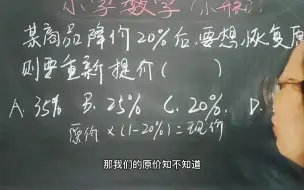 小学数学(小升初)
某商品降价20%后,要想恢复原
则要重新提价( )
A.35% B.25% C.20%. D.
原价×(1-20%)=现价
那我们的原价知不知道